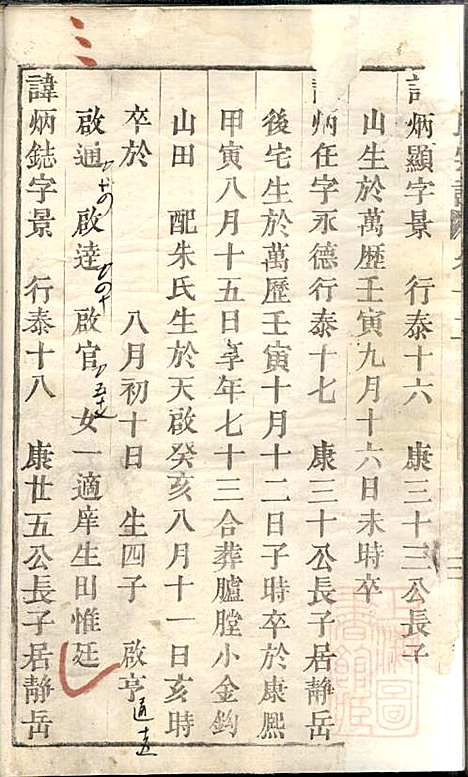 諱炳顯字景　行泰十六　康三十三公長子
山生於萬歷壬寅九月十六日未時卒
炳任字永德行泰十七　康三十公長子居靜岳
後宅生於萬歷壬寅十月十二日子時卒於康熙
甲寅八月十五日享年七十三合葬臚膛小金鈎
山田　配朱氏生於天啟癸亥八月十一日亥時
卒於　　八月初十日　生四子　啟亨
啟通　啟達　啟官　女一適庠生田惟廷
諱炳鋕字景　行泰十八　康廿五公長子居靜岳